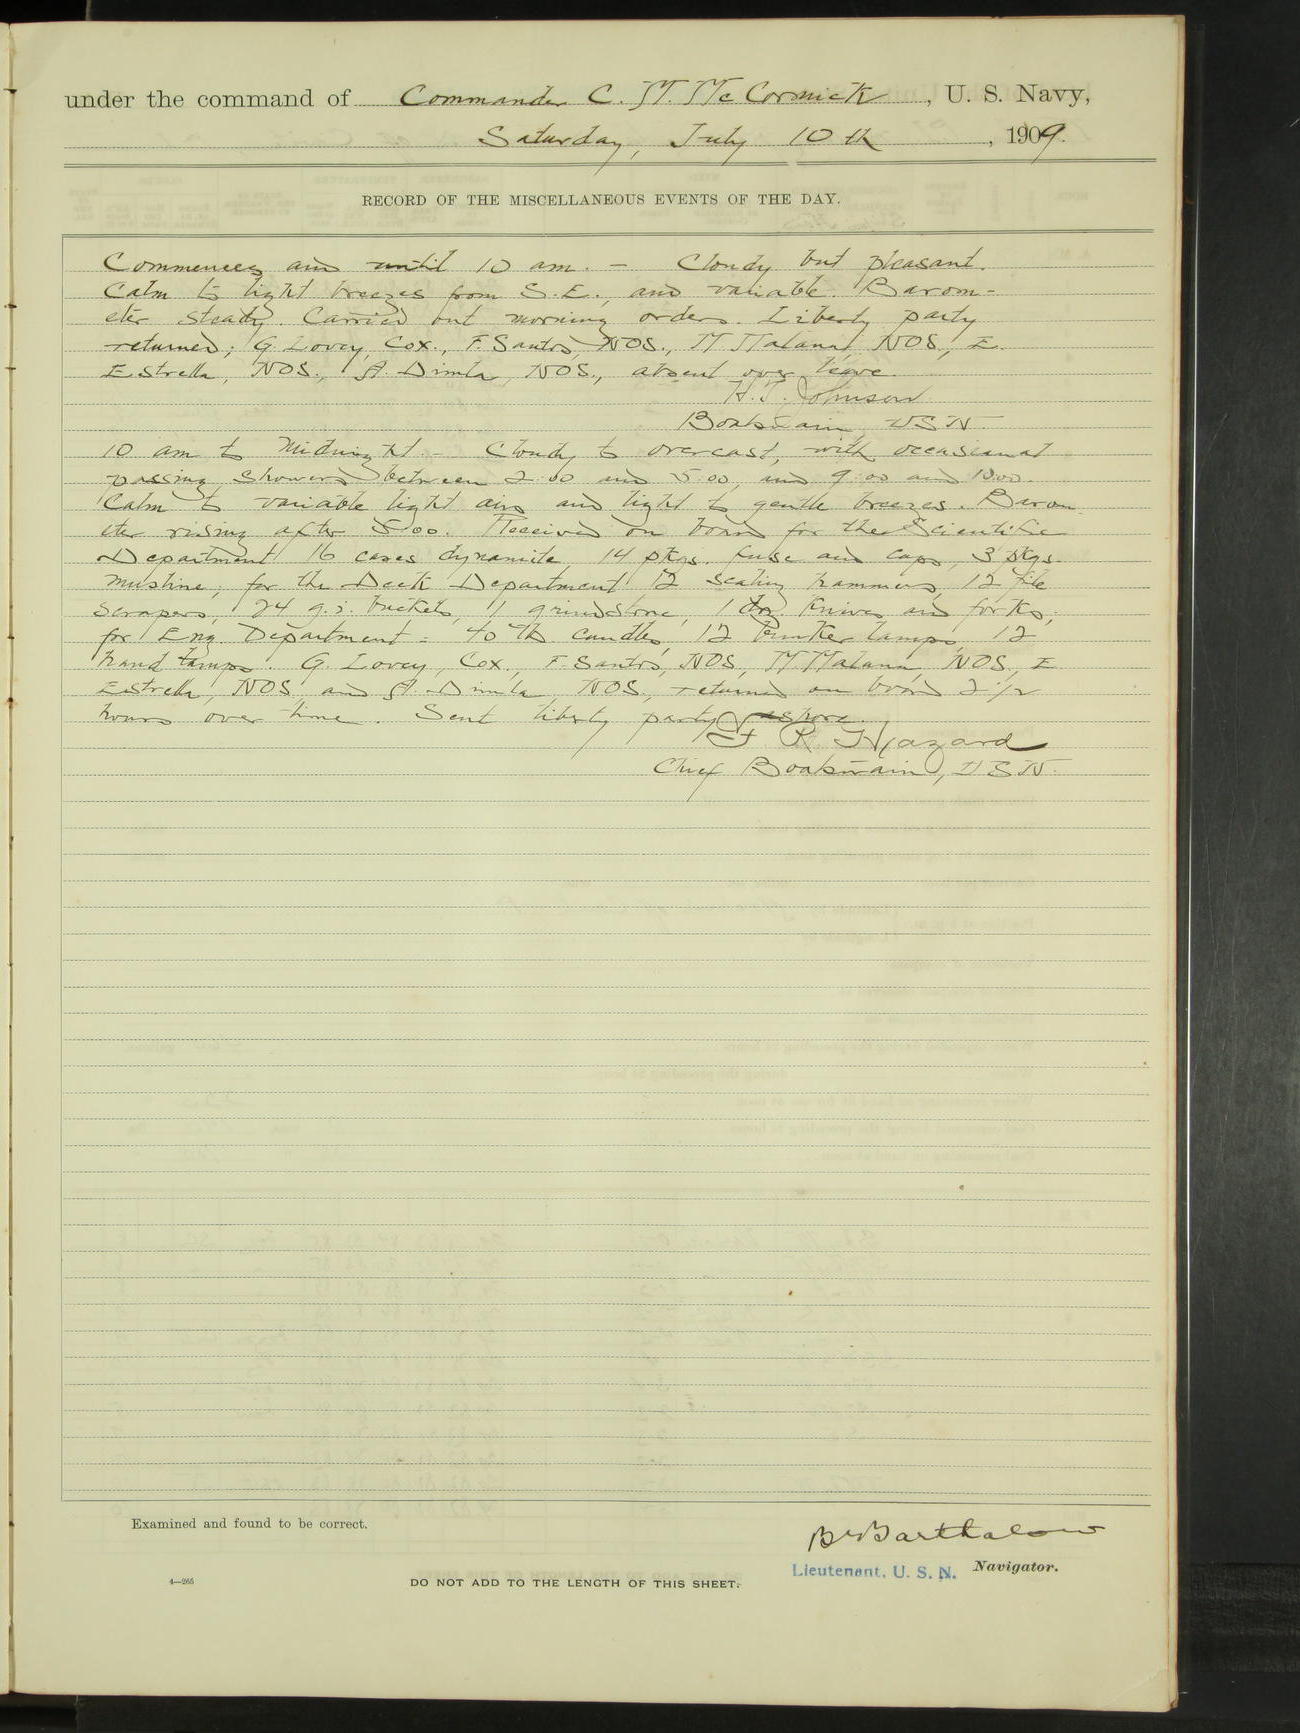 under the command of Commander C. M. McCormick, U. S. Navy,
Saturday, July 10th, 1909.
RECORD OF THE MISCELLANEOUS EVENTS OF THE DAY.
Commences and until 10 am. - Cloudy but pleasant.
Calm to light breezes from S.E., and variable. Barom-
eter steady. Carried out morning orders. Liberty party
returned; G. Lovey, Cox., F. Santos, NOS., M Malana, NOS., E.
Estrella, NOS., A. Dimla, NOS., absent over leave.
H. T. Johnson
Boatswain, USN.
10 am to Midnight. - Cloudy to overcast, with occasional
passing showers between 2:00 and 5:00, and 9:00 and 10:00.
Calm to variable light airs and light to gentle breezes. Barom-
eter rising after 5:00. Received on board for the Scientific
Department 16 cases dynamite, 14 pkgs. fuse and caps, 3 pkgs.
musline; for the Deck Department 12 scaling hammers, 12 file
scrapers, 24 g.i. buckets, 1 grindstone, 1 doz. knives and forks;
for Eng. Department = 40 lbs candles, 12 bunker lamps, 12
hand lamps. G. Lovey, Cox., F. Santos, NOS, M Malana, NOS., E
Estrella, NOS, and A. Dimla, NOS, returned on board 2 1/2
hours over time. Sent liberty party ashore.
F. R. Hazard
Chief Boatswain, USN.
Examined and found to be correct.
Barthalow
Lieutenant, U. S. N. Navigator.
4—265
DO NOT ADD TO THE LENGTH OF THIS SHEET.